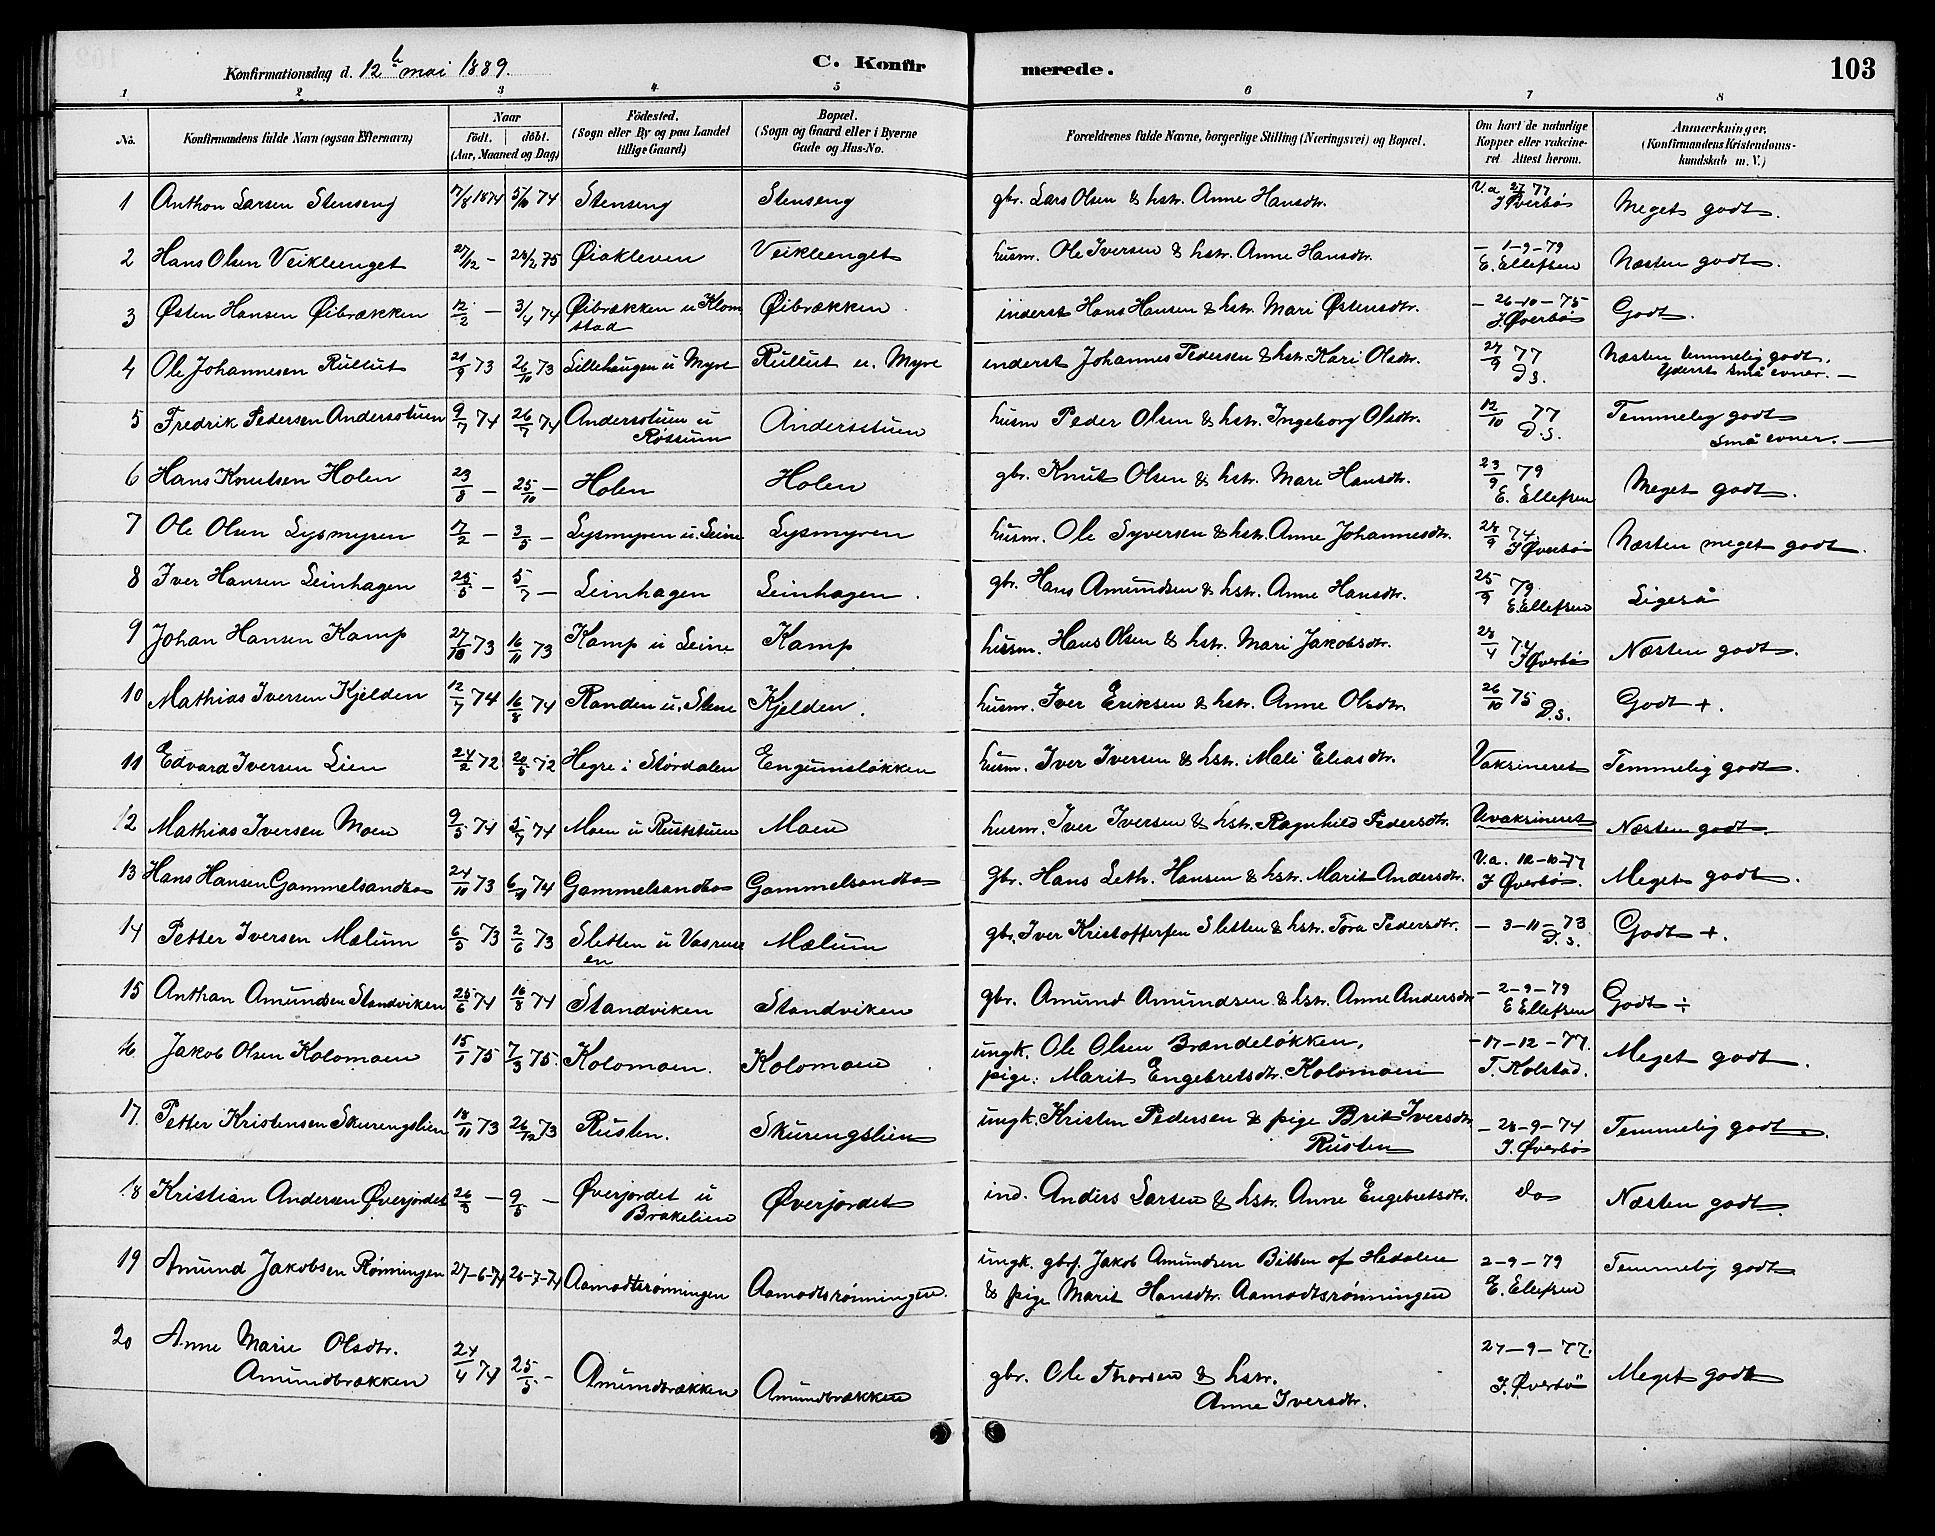 Konfirmationsdag d. 12te mai 1889. C. Konfirmerede. 103
1 2 3 4 5 6 7 8
No. Konfirmandens fulde Navn (ogsaa Efternavn) Naar födt. döbt. (Aar, Maaned og Dag) Födested. (Sogn eller By og paa Landet tillige Gaard) Bopæl. (Sogn og Gaard eller i Byerne Gade og Hus-No. Forældrenes fulde Navne, borgerlige Stilling (Næringsvei) og Bopæl. Om havt de naturlige Kopper eller vakcineret Attest herom. Anmærkninger. (Konfirmandens Kristendomskundskab m. V.)
1 Anthon Larsen Stenseng 7/8 1874 5/10 74 Stenseng Stenseng gbr. Lars Olsen & hstr. Anne Hansdtr. V.a 77 J Øverbø Meget godt.
2 Hans Olsen Veikleenget 27/12 - 28/2 75 Øiakleven Veikleenget husm. Ole Iversen & hstr. Anne Hansdtr. - 1-9-79 E. Ellefsen Næsten godt.
3 Østen Hansen Øibrækken 12/2 - 3/4 74 Øibrækken u Klomstad Øibrækken inderst Hans Hansen & hstr. Mari Østensdtr. - 26-10-75 J. Øverbø Godt.
4 Ole Johannesen Rullut 21/9 73 26/10 73 Lillehaugen u Myre Rullut u. Myre inderst Johannes Pedersen & hstr. Kari Olsdtr. 27/9 77 D.S. Næsten temmelig godt. Yderst små evner. -
5 Fredrik Pedersen Andersstuen 9/7 74 26/7 74 Andersstuen u Røssum Andersstuen husm Peder Olsen & hstr. Ingeborg Olsdtr. 12/10 77 D.S. Temmelig godt små evner. -
6 Hans Knutsen Holen 23/8 - 25/10 - Holen Holen gbr. Knut Olsen & hstr. Mari Hansdtr. 23/9 79 E. Ellefsen Meget godt.
7 Ole Olsen Lysmyren 17/2 - 3/5 - Lysmyren u. Leine Lysmyren husm. Ole Syversen & hstr. Anne Johannesdtr. 28/9 74 J Øverbø Næsten meget godt.
8 Iver Hansen Leinhagen 25/5 - 5/7 - Leinhagen Leinhagen. gbr. Hans Amundsen & hstr. Anne Hansdtr. 25/9 79 E. Ellefsen Ligeså
9 Johan Hansen Kamp 27/10 73 16/11 73 Kamp u Leine Kamp husm. Hans Olsen & hstr. Mari Jakobsdtr. 28/4 74 J Øverbø Næsten godt.
10 Mathias Iversen Kjelden 12/7 74 16/8 74 Randen u. Stene Kjelden. husm. Iver Eriksen & hstr. Anne Olsdtr. 26/10 75 D.S. Godt +.
11 Edvard Iversen Lien 24/2 72 20/5 72 Hegre i Størdalen Engumsløkken husm. Iver Iversen & hstr. Mali Eliasdtr. Vaksineret Temmelig godt.
12 Mathias Iversen Moen 9/5 74 5/7 74 Moen u Ruststuen Moen husm. Iver Iversen & hstr. Ragnhild Pedersdtr. Uvaksineret Næsten godt.
13 Hans Hansen Gammelsandbo 24/11 73 74 Gammelsandbo Gammelsandbo Gbr. Hans Seth. Hansen & hstr. Marit Andersdtr. V.a. 12-10-77 J Øverbø. Meget godt.
14 Petter Iversen Mælum 6/5 73 2/6 73 Sletten u Vasrusten Mælum gbr. Iver Kristoffersen Sletten & hstr. Tora Pedersdtr. - 3-11-73 D.S. Godt +.
15 Anthan Amundsen Standviken 25/6 74 16/8 74 Standviken Standviken gbr. Amund Amundsen & hstr. Anne Andersdtr - 2-9-79 E Ellefsen Godt ÷
16 Jakob Olsen Kolomoen 15/1 75 7/3 75. Kolomoen. Kolomoen ungk. Ole Olsen Brændeløkken, pige: Marit Engebretsdtr. Kolomoen - 17-12-77. T. Kolstad. Meget godt.
17. Petter Kristensen Skurengslien 18/11 73 26/12 73 Rusten. Skurengslien ungk. Kristen Pedersen & pige Brit Iversdtr Rusten - 28-9-74 J. Øverbø Temmelig godt.
18 Kristian Andersen Øverjordet 26/3 - 9/5 - Øverjordet u Brakelien Øverjordet ind. Anders Larsen & hstr. Anne Engebretsdtr. Do Næsten godt.
19 Amund Jakobsen Rønningen 27-6-74 26-7-74 Aamodtsrønningen Aamodtsrønningen. ungk. gbrs. Jakob Amundsen Bitben af Hedalen & pige Marit Hansdtr. Aamodtsrønningen 2-9-79 E. Elefsen Temmelig godt
20 Anne Marie Olsdtr. Amundbrækken 24/4 74 25/5 - Amundbrækken Amundbrækken gbr. Ole Thorsen & hstr. Anne Iversdtr. 27-9-77. J. Øverbø Meget godt